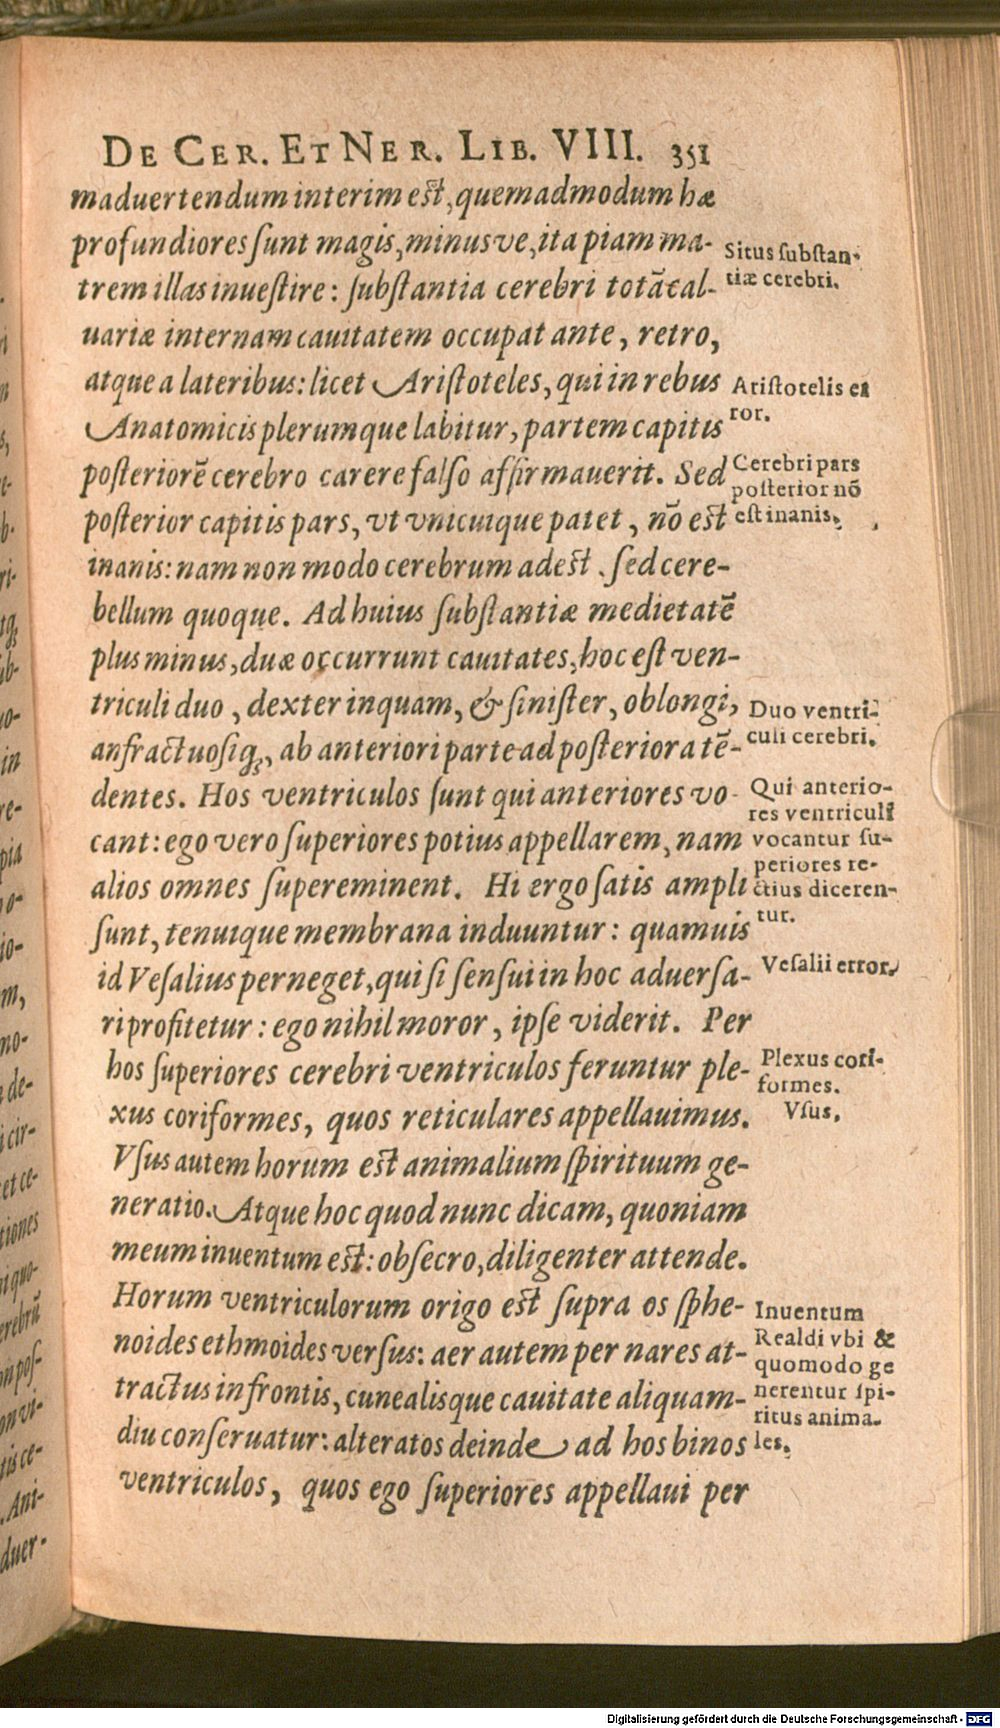 DE CER. ET NER. LIB. VIII. 351
maduertendum interim est, quemadmodum hæ
profundiores ſunt magis, minusve, ita piam ma-
trem illas inueſtire: ſubſtantia cerebri totā cal-
uariæ internam cauitatem occupat ante, retro,
atque a lateribus: licet Ariſtoteles, qui in rebus
Anatomicis plerumque labitur, partem capitis
poſteriorē cerebro carere falſo affirmauerit. Sed
poſterior capitis pars, vt vnicuique patet, nō est
inanis: nam non modo cerebrum adest. ſed cere-
bellum quoque. Ad huius ſubſtantiæ medietatē
plus minus, duæ occurrunt cauitates, hoc eſt ven-
triculi duo, dexter inquam, & ſiniſter, oblongi,
anfractuoſiq;, ab anteriori parte ad poſteriora tē-
dentes. Hos ventriculos ſunt qui anteriores vo-
cant: ego vero ſuperiores potius appellarem, nam
alios omnes ſupereminent. Hi ergo ſatis ampli
ſunt, tenuique membrana induuntur: quamuis
id Veſalius perneget, qui ſi ſenſui in hoc aduerſa-
ri profitetur: ego nihil moror, ipſe viderit. Per
hos ſuperiores cerebri ventriculos feruntur ple-
xus coriformes, quos reticulares appellauimus.
Vſus autem horum est animalium ſpirituum ge-
neratio. Atque hoc quod nunc dicam, quoniam
meum inuentum est: obſecro, diligenter attende.
Horum ventriculorum origo est ſupra os ſphe-
noides ethmoides verſus: aer autem per nares at-
tractus in frontis, cunealisque cauitate aliquam-
diu conſeruatur: alteratos deinde ad hos binos
ventriculos, quos ego ſuperiores appellaui per
Situs ſubſtan-
tiæ cerebri.
Ariſtotelis er
ror.
Cerebri pars
poſterior nō
eſt inanis.
Duo ventri-
culi cerebri.
Qui anterio-
res ventriculi
vocantur ſu-
periores re-
ctius diceren-
tur.
Veſalii error.
Plexus cori-
formes.
Vſus.
Inuentum
Realdi vbi &
quomodo ge
nerentur ſpi-
ritus anima-
les.
Digitalisierung gefördert durch die Deutsche Forschungsgemeinschaft - DFG